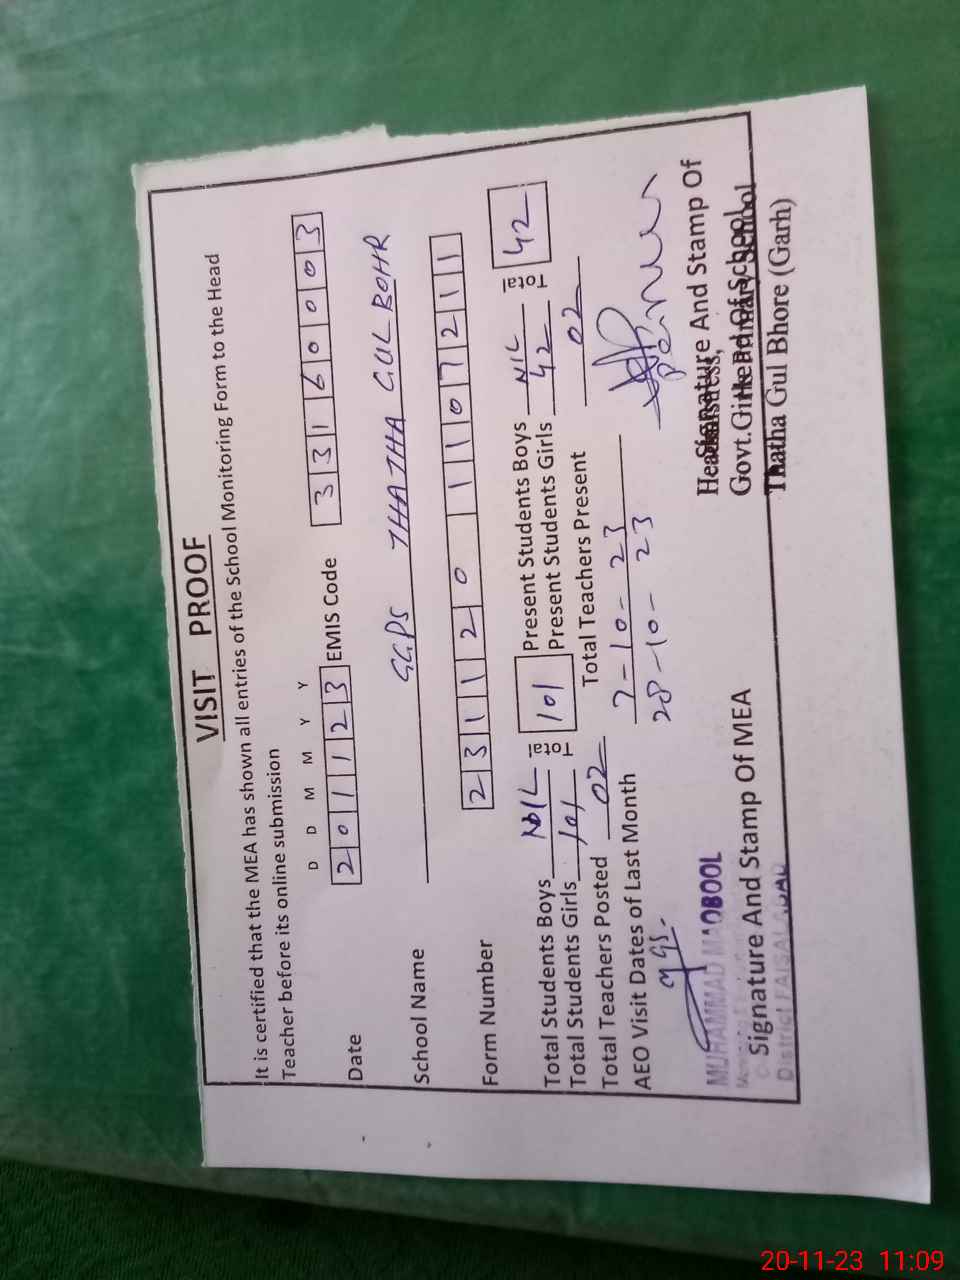 VISIT PROOF
It is certified that the MEA has shown all entries of the School Monitoring Form to the Head
Teacher before its online submission
D D M M Y Y
Date 2 0 1 1 2 3 EMIS Code 3 3 1 6 0 0 0 3
School Name GGPS THATHA GUL BOHR
Form Number 2 3 1 1 2 0 1 1 0 7 2 1 1
Total Students Boys NIL Total 101 Present Students Boys NIL Total 42
Total Students Girls 101 Present Students Girls 42
Total Teachers Posted 02 Total Teachers Present 02
AEO Visit Dates of Last Month 7-10-23
28-10-23
MUHAMMAD MAQBOOL
Signature And Stamp Of MEA
District FAISALABAD
Signature And Stamp Of
Head Of School
Headmistress,
Govt.Girls Primary School
Thatha Gul Bhore (Garh)
20-11-23 11:09